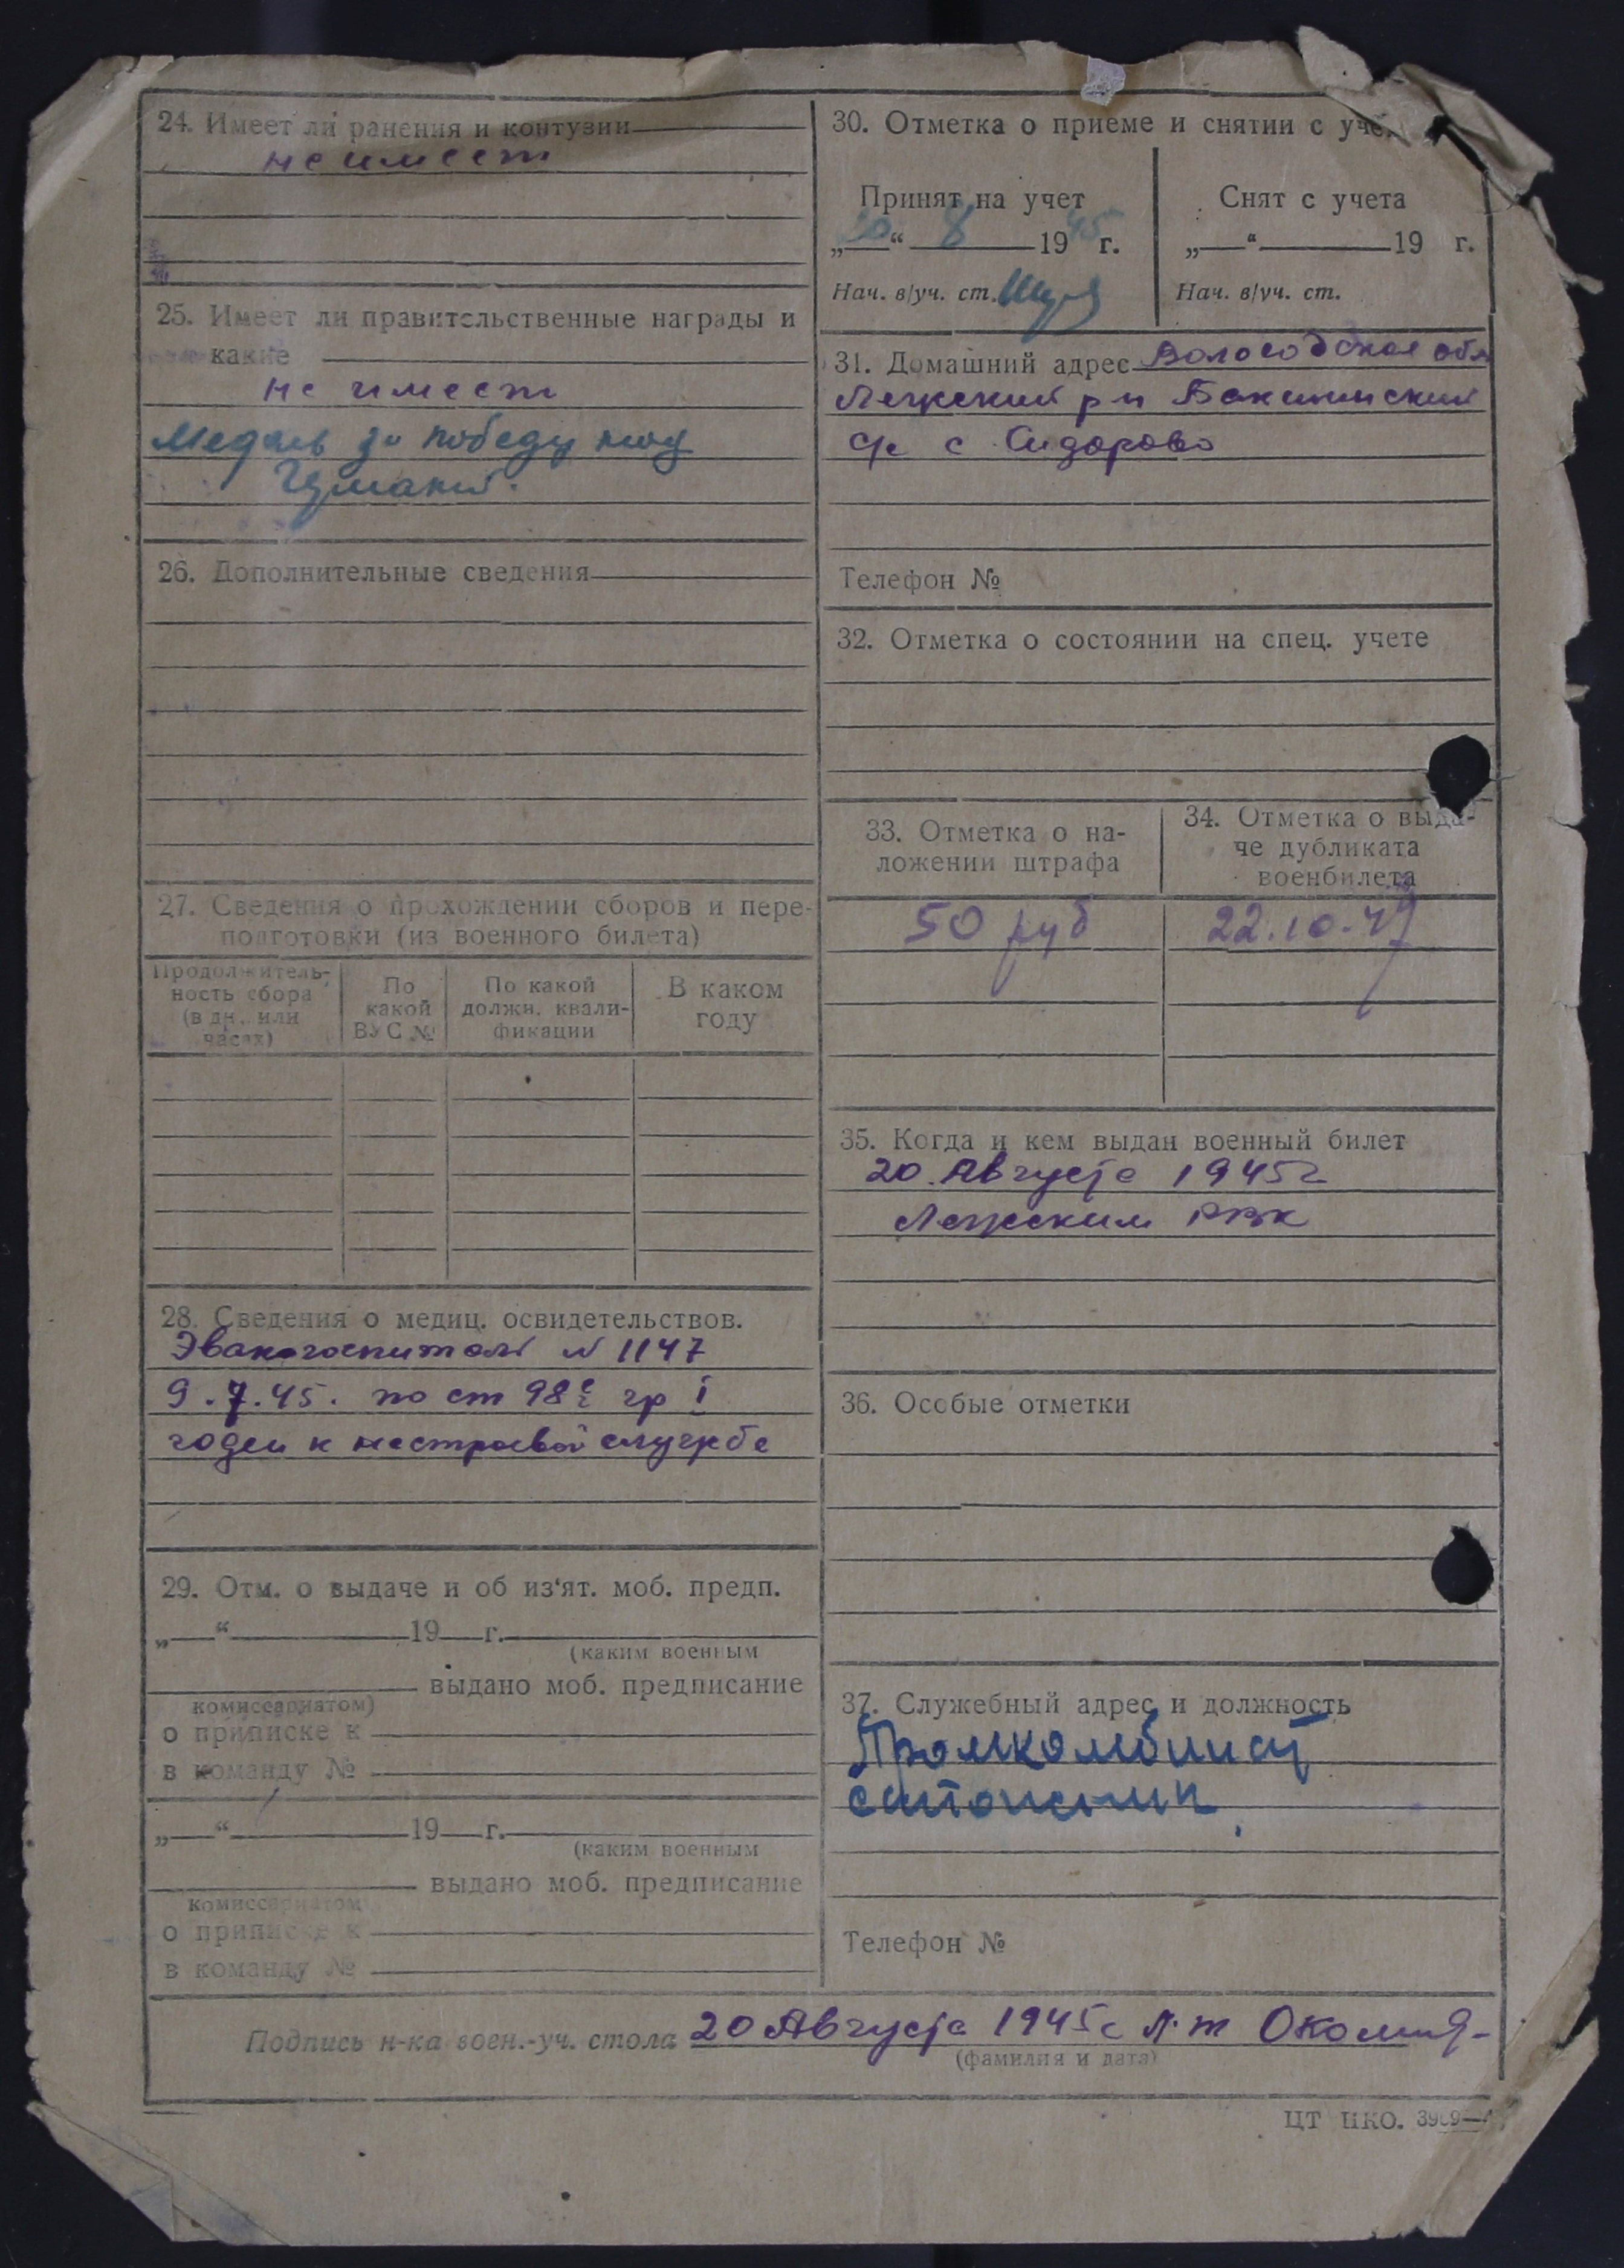 24. Имеет ли ранения и контузии
не имеет
25. Имеет ли правительственные награды и
какие
не имеет
Медаль за победу над
Германией.
26. Дополнительные сведения
27. Сведения о прохождении сборов и пере-
подготовки (из военного билета)
Продолжитель-
ность сбора
(в дн. или
часах)
По
какой
ВУС №
По какой
должн. квали-
фикации
В каком
году
28. Сведения о медиц. освидетельствов.
Эвакогоспиталь № 1147
9.7.45. по ст 98 гр I
годен к нестроевой службе
29. Отм. о выдаче и об из‘ят. моб. предп.
„—“—19—г.
(каким военным
выдано моб. предписание
комиссариатом)
о приписке к
в команду №
„—“—19—г.
(каким военным
выдано моб. предписание
комиссариатом
о приписке к
в команду №
30. Отметка о приеме и снятии с уче
Принят на учет
„20“ 8 1945 г.
Нач. в/уч. ст.
Снят с учета
„—“—19 г.
Нач. в/уч. ст.
31. Домашний адрес Вологодская обл
Лежский р-н Бакшинский
с/с с. Сидорово
Телефон №
32. Отметка о состоянии на спец. учете
33. Отметка о на-
ложении штрафа
50 руб
34. Отметка о выда-
че дубликата
военбилета
22.10.47
35. Когда и кем выдан военный билет
20 Августа 1945г
Лежским РВК
36. Особые отметки
37. Служебный адрес и должность
Промкомбинат
сапожник
Телефон №
Подпись н-ка воен.-уч. стола 20 Августа 1945г Л-т
(фамилия и дата)
ЦТ НКО.